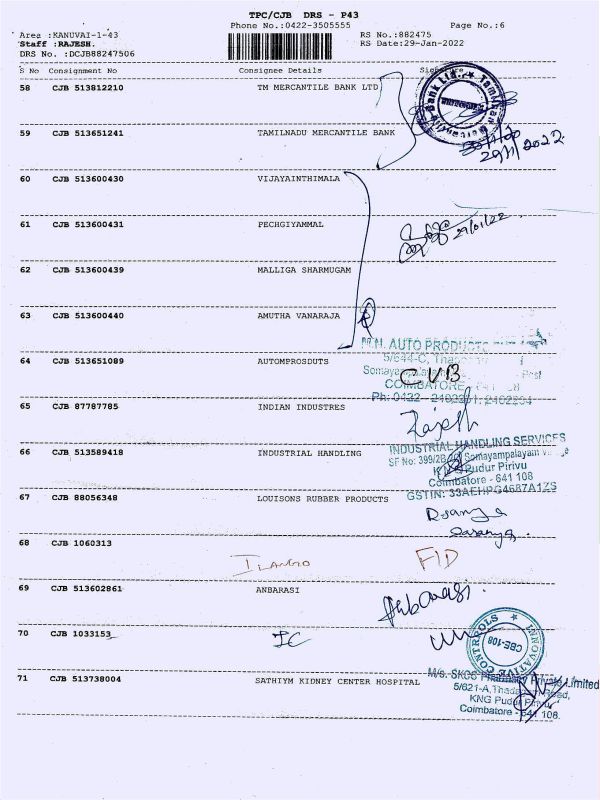 TPC/CJB DRS - P43
Phone No.:0422-3505555 Page No.:6
Area :KANUVAI-1-43 RS No.:882475
Staff :RAJESH. RS Date:29-Jan-2022
DRS No. :DCJB88247506
S No Consignment No Consignee Details
58 CJB 513812210 TM MERCANTILE BANK LTD
59 CJB 513651241 TAMILNADU MERCANTILE BANK
29/1/2022
60 CJB 513600430 VIJAYAINTHIMALA
61 CJB 513600431 PECHGIYAMMAL
29/01/22
62 CJB 513600439 MALLIGA SHARMUGAM
63 CJB 513600440 AMUTHA VANARAJA
M.N. AUTO PRODUCTS
64 CJB 513651089 AUTOMPROSDUTS
5/644-C,
CUB
COIMBATORE
65 CJB 87787785 INDIAN INDUSTRES
Rajesh
INDUSTRIAL HANDLING SERVICES
66 CJB 513589418 INDUSTRIAL HANDLING
Somayampalayam
KNG Pudur Pirivu
Coimbatore - 641 108
GSTIN: 33AEHPG4687A1ZS
67 CJB 88056348 LOUISONS RUBBER PRODUCTS
68 CJB 1060313
ILANGO FID
69 CJB 513602861 ANBARASI
70 CJB 1033153 IC
INNOVATIVE CONTROLS
CBE-108
71 CJB 513738004 SATHIYM KIDNEY CENTER HOSPITAL
M/s. SKGS Pharmacy Private Limited
5/621-A, Road,
KNG Pudur Pirivu,
Coimbatore - 641 108.